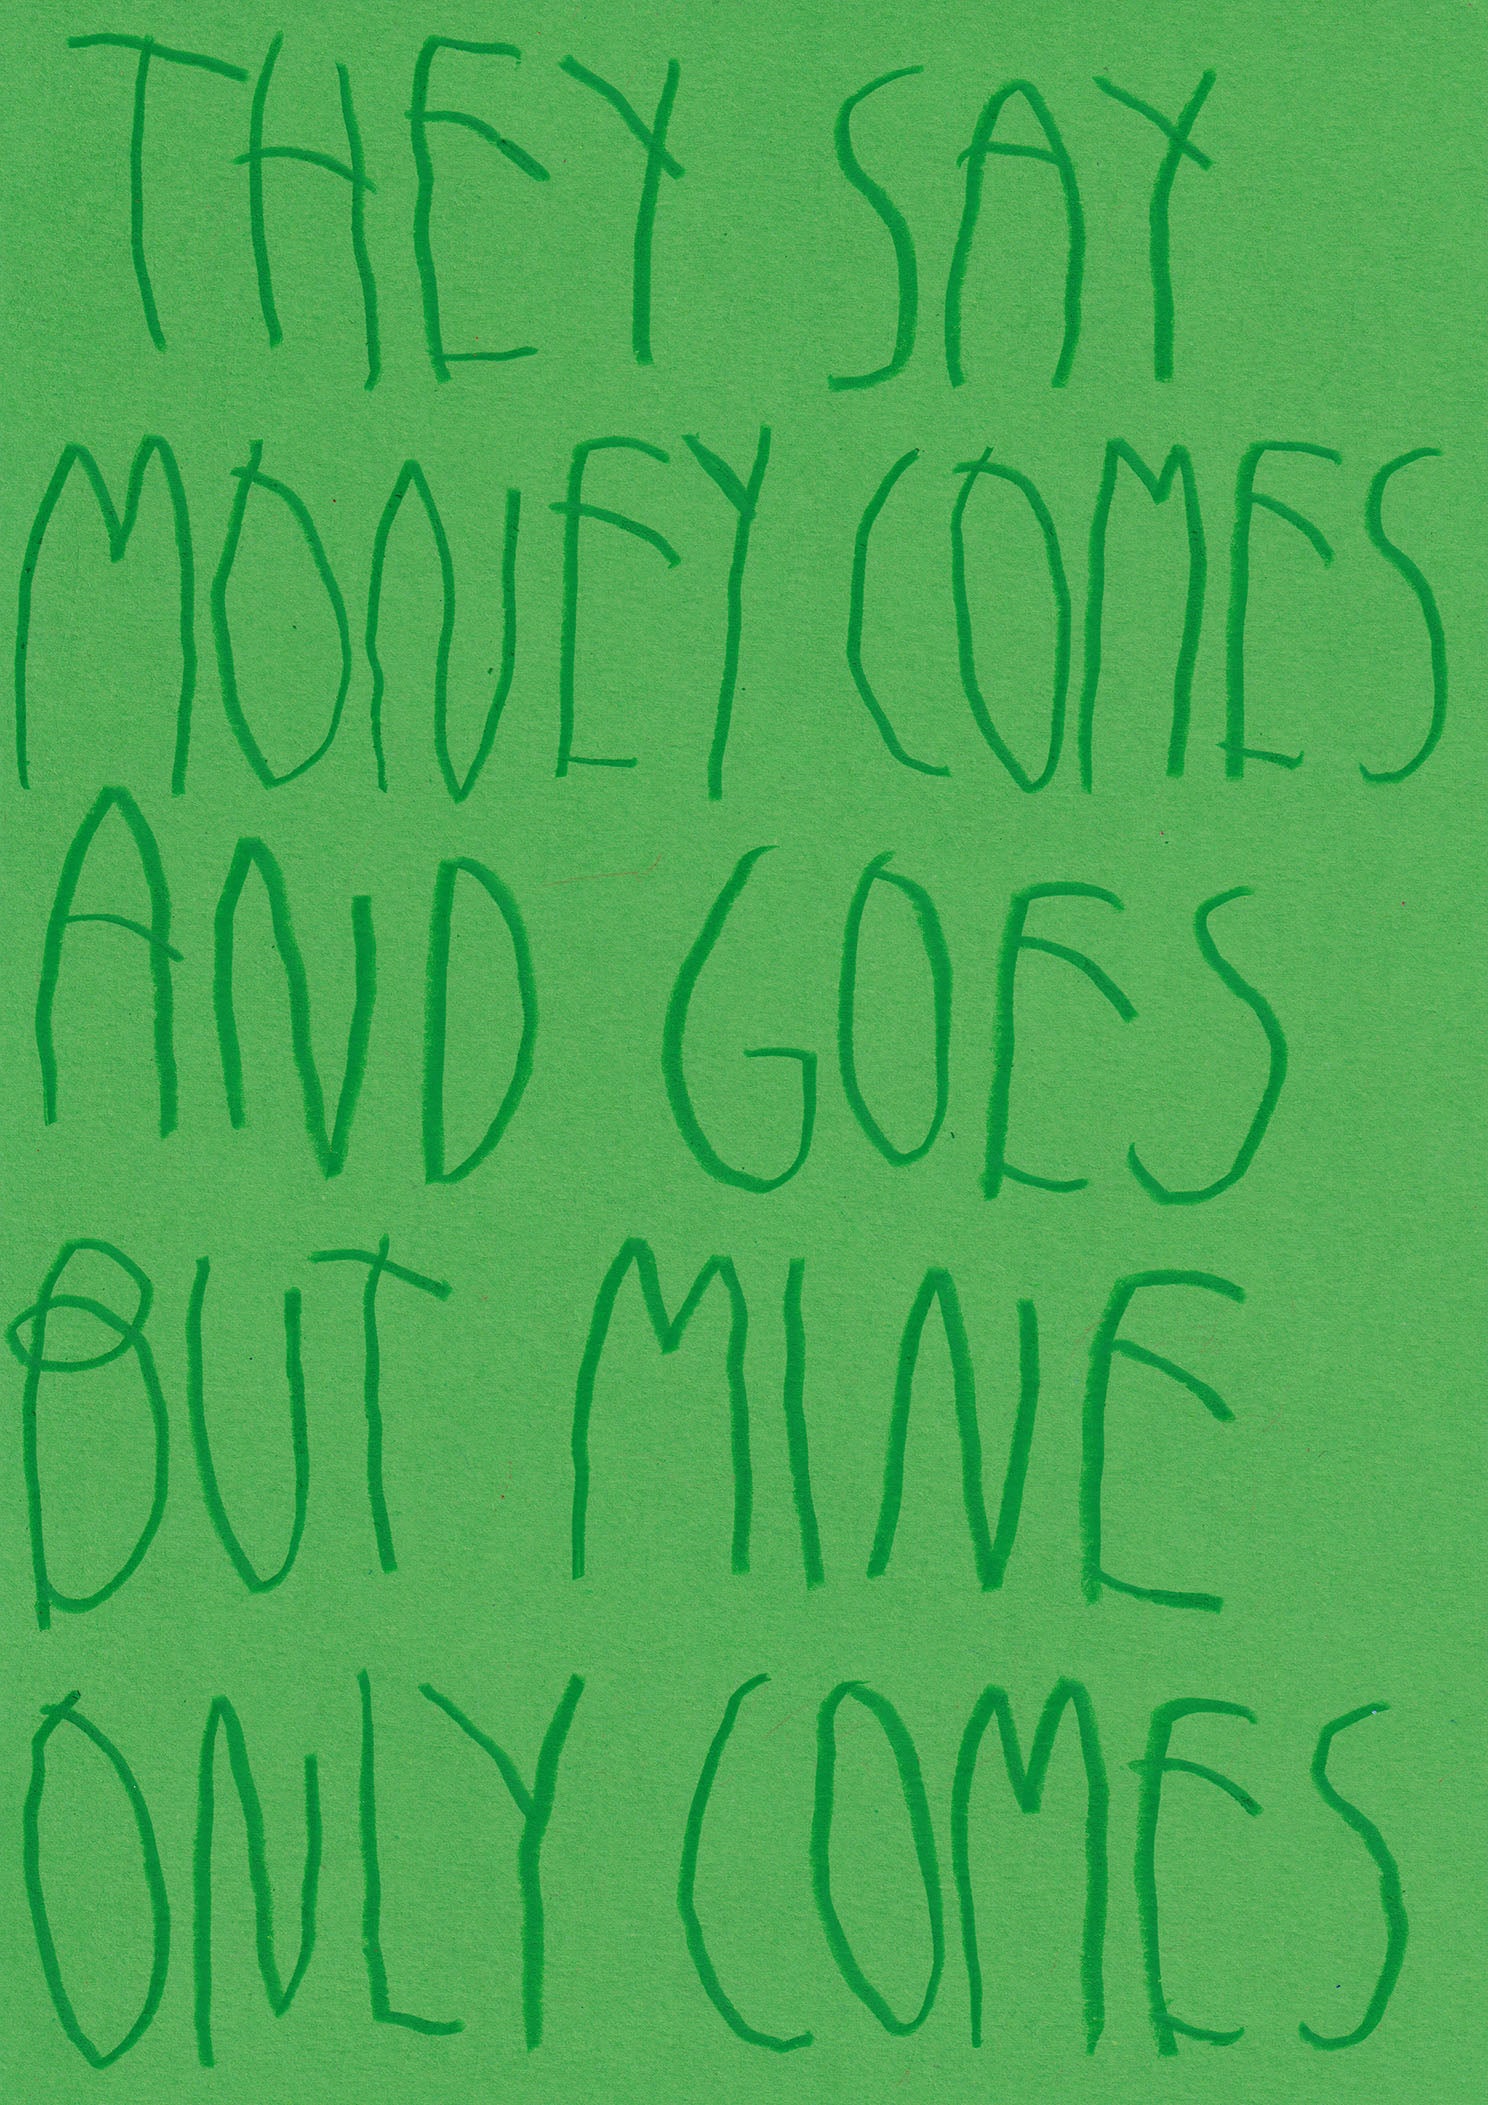 THEY SAY
MONEY COMES
AND GOES
BUT MINE
ONLY COMES